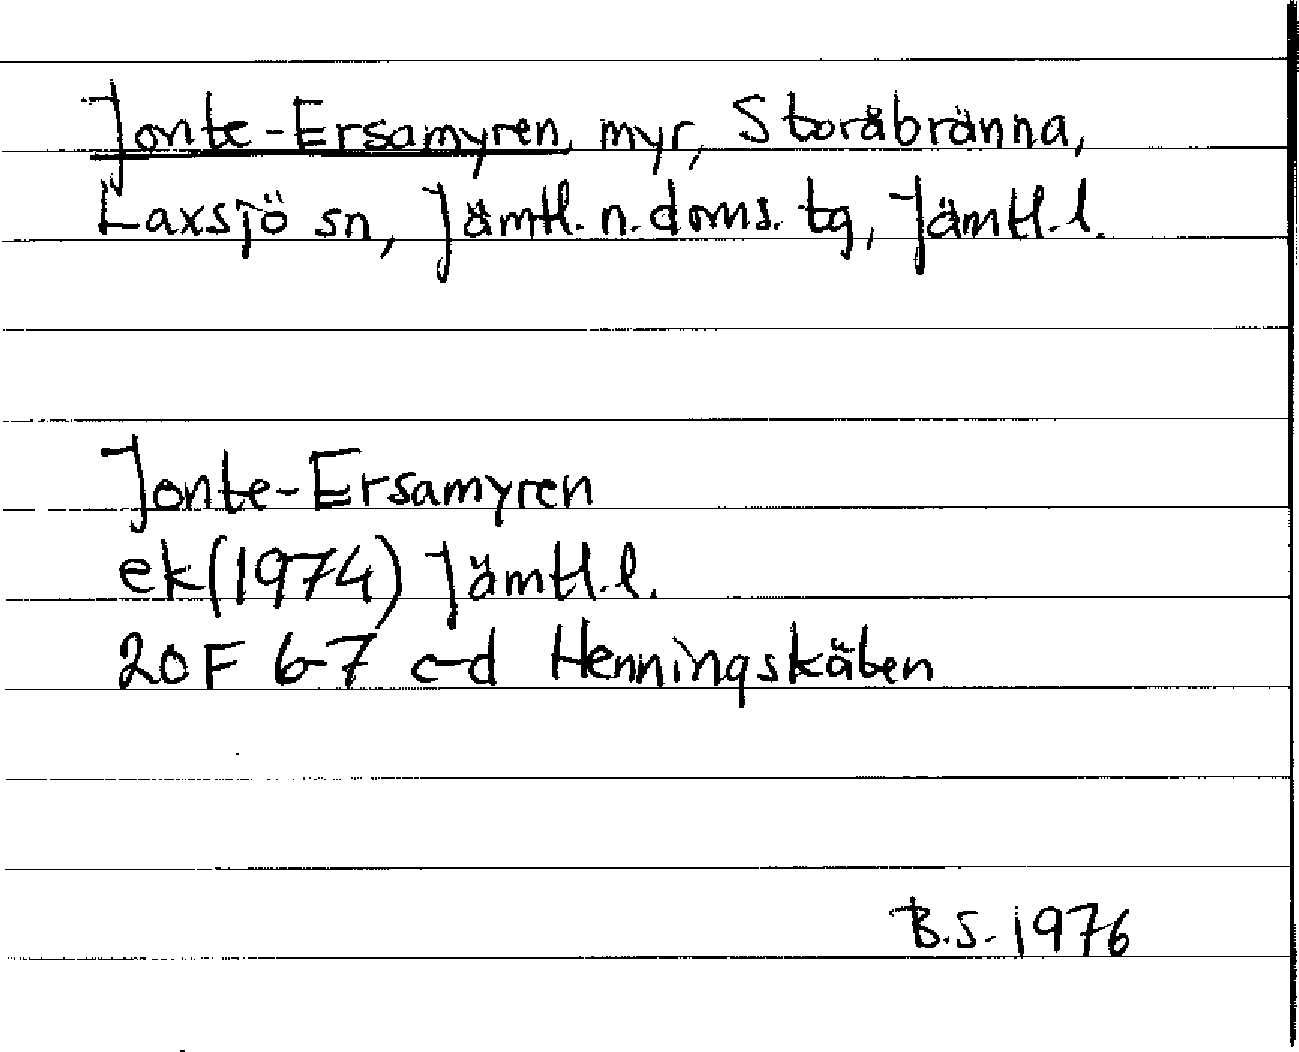 Jonte-Ersamyren, myr, Storåbränna,
Laxsjö sn, Jämtl. n. doms. tg, Jämtl. l.
Jonte-Ersamyren
ek (1974) Jämtl. l.
20 F 6-7 c-d Henningskälen
B.S. 1976